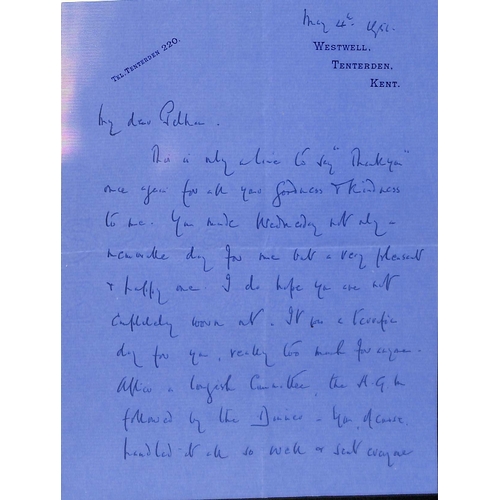 May 4th 1951.
TEL. TENTERDEN 220.
WESTWELL,
TENTERDEN,
KENT.
My dear Pelham.
This is only a line to say "Thank you"
once again for all your goodness & kindness
to me. You made Wednesday not only a
memorable day for me but a very pleasant
& happy one. I do hope you are not
completely worn out. It was a terrific
day for you, really too much for anyone.
After a longish Committee, the A.G.M
followed by the Dinner - You, of course,
handled it all so well & sent everyone